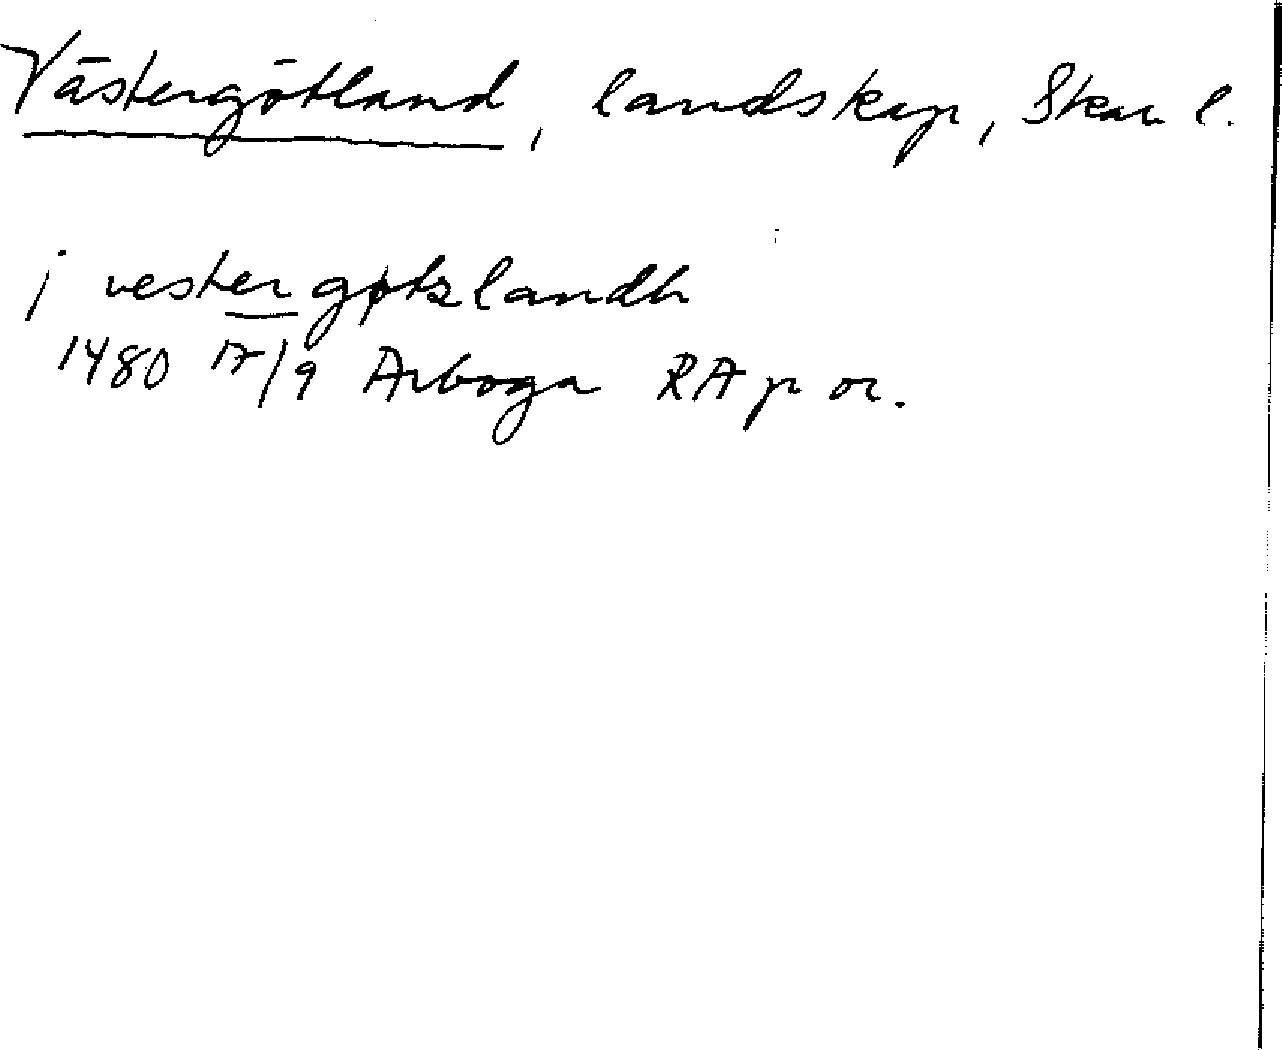 Västergötland, landskap, Skar l.
j vestergøtzlandh
1480 17/9 Arboga RA p or.